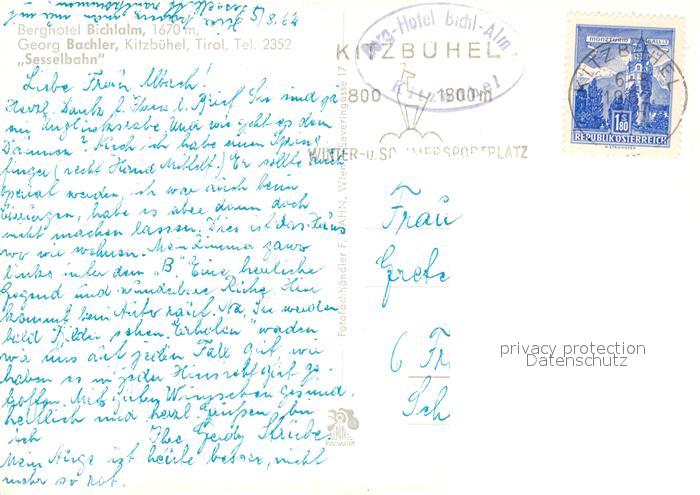 5/8.62
Berghotel Bichlalm, 1670 m,
Georg Bachler, Kitzbühel, Tirol, Tel. 2352
„Sesselbahn"
Liebe Frau Albach!
Herzl. Dank f. Ihren l. Brief. Sie sind ja
ein Unglücksrabe. Und wie geht es dem
Daumen? Auch ich habe einen
finger (rechte Hand Mittelf.) Er sollte auch
operiert werden, ich war auch beim
Chirurgen, habe es aber dann doch
nicht machen lassen. Dies ist das Haus
wo wir wohnen. Mein Zimmer
links unter dem „B." Eine herrliche
Gegend und wunderbare Ruhe. Hier
kommt kein Auto rauf. Na, Sie werden
bald Bilder sehen. Erholen werden
wir uns auf jeden Fall gut, wir
haben es in jeder Hinsicht gut ge-
troffen. Mit guten Wünschen Gesund-
heitlich und herzl. Grüßen bin
ich Ihre Gerdy Stäube
Mein Auge ist heute besser, nicht
mehr so rot.
Fotofachhändler F.
Wien
17
Berg-Hotel Bichl-Alm
Kitzbühel
KITZBÜHEL
800 1800m
WINTER-u. SOMMERSPORTPLATZ
KITZBÜHEL
MÜNZTURM HALL i.T.
1.80
REPUBLIK ÖSTERREICH
Frau
Grete
6 Fr
Sch
privacy protection
Datenschutz